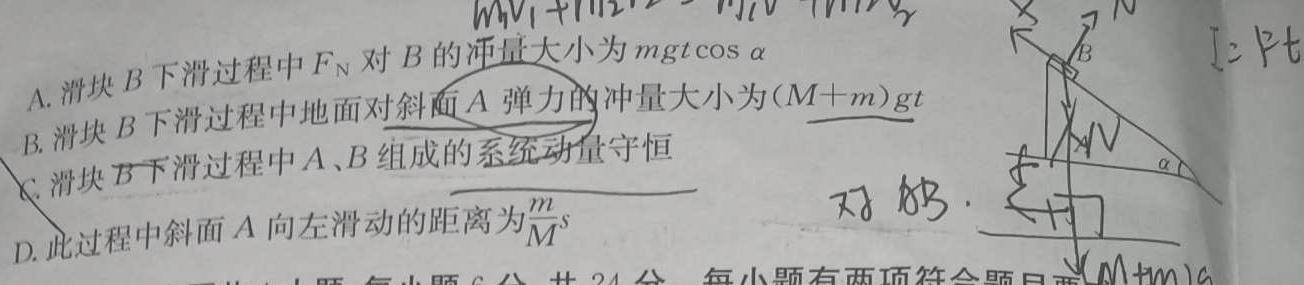 m₁v₁+m₂v₂ = m₁v +m₂v₂
A.滑块 B 下滑过程中 F_N 对 B 的冲量大小为 mgt cos α
I=Ft
B.滑块 B 下滑过程中地面对斜面 A 弹力的冲量大小为(M+m)gt
C.滑块 B 下滑过程中 A、B 组成的系统动量守恒
D.此过程中斜面 A 向左滑动的距离为 m/M s
N
B
N
α
对
(M+m)g
共 24 分 每小题有两项符合题目要